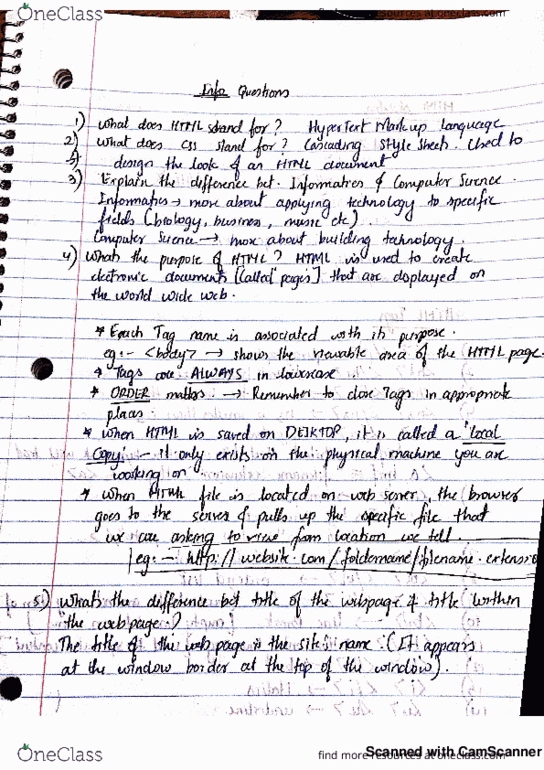 OneClass
find more resources at oneclass.com
Info Questions
1) What does HTML stand for? HyperText Markup Language
2) What does CSS stand for? Cascading Style Sheets. Used to
design the look of an HTML document
3) Explain the difference bet. Informatics & Computer Science
Informatics → more about applying technology to specific
fields (biology, business, music etc).
Computer Science → more about building technology.
4) Whats the purpose of HTML? HTML is used to create
electronic documents (called "pages") that are displayed on
the world wide web.
* Each Tag name is associated with its purpose.
eg:- <body> → shows the viewable area of the HTML page.
* Tags are ALWAYS in lowercase
* ORDER matters. → Remember to close Tags in appropriate
places
* When HTML is saved on DESKTOP, it is called a "local
Copy". - it only exists on the physical machine you are
working on
* When HTML file is located on web server, the browser
goes to the server & pulls up the specific file that
we are asking to view from location we tell.
eg:- http://website.com/foldername/filename.extension
5) What's the difference bet title of the webpage & title within
the webpage?
The title of the web page is the site's name. (It appears
at the window border at the top of the window).
OneClass
find more resources at oneclass.com
Scanned with CamScanner